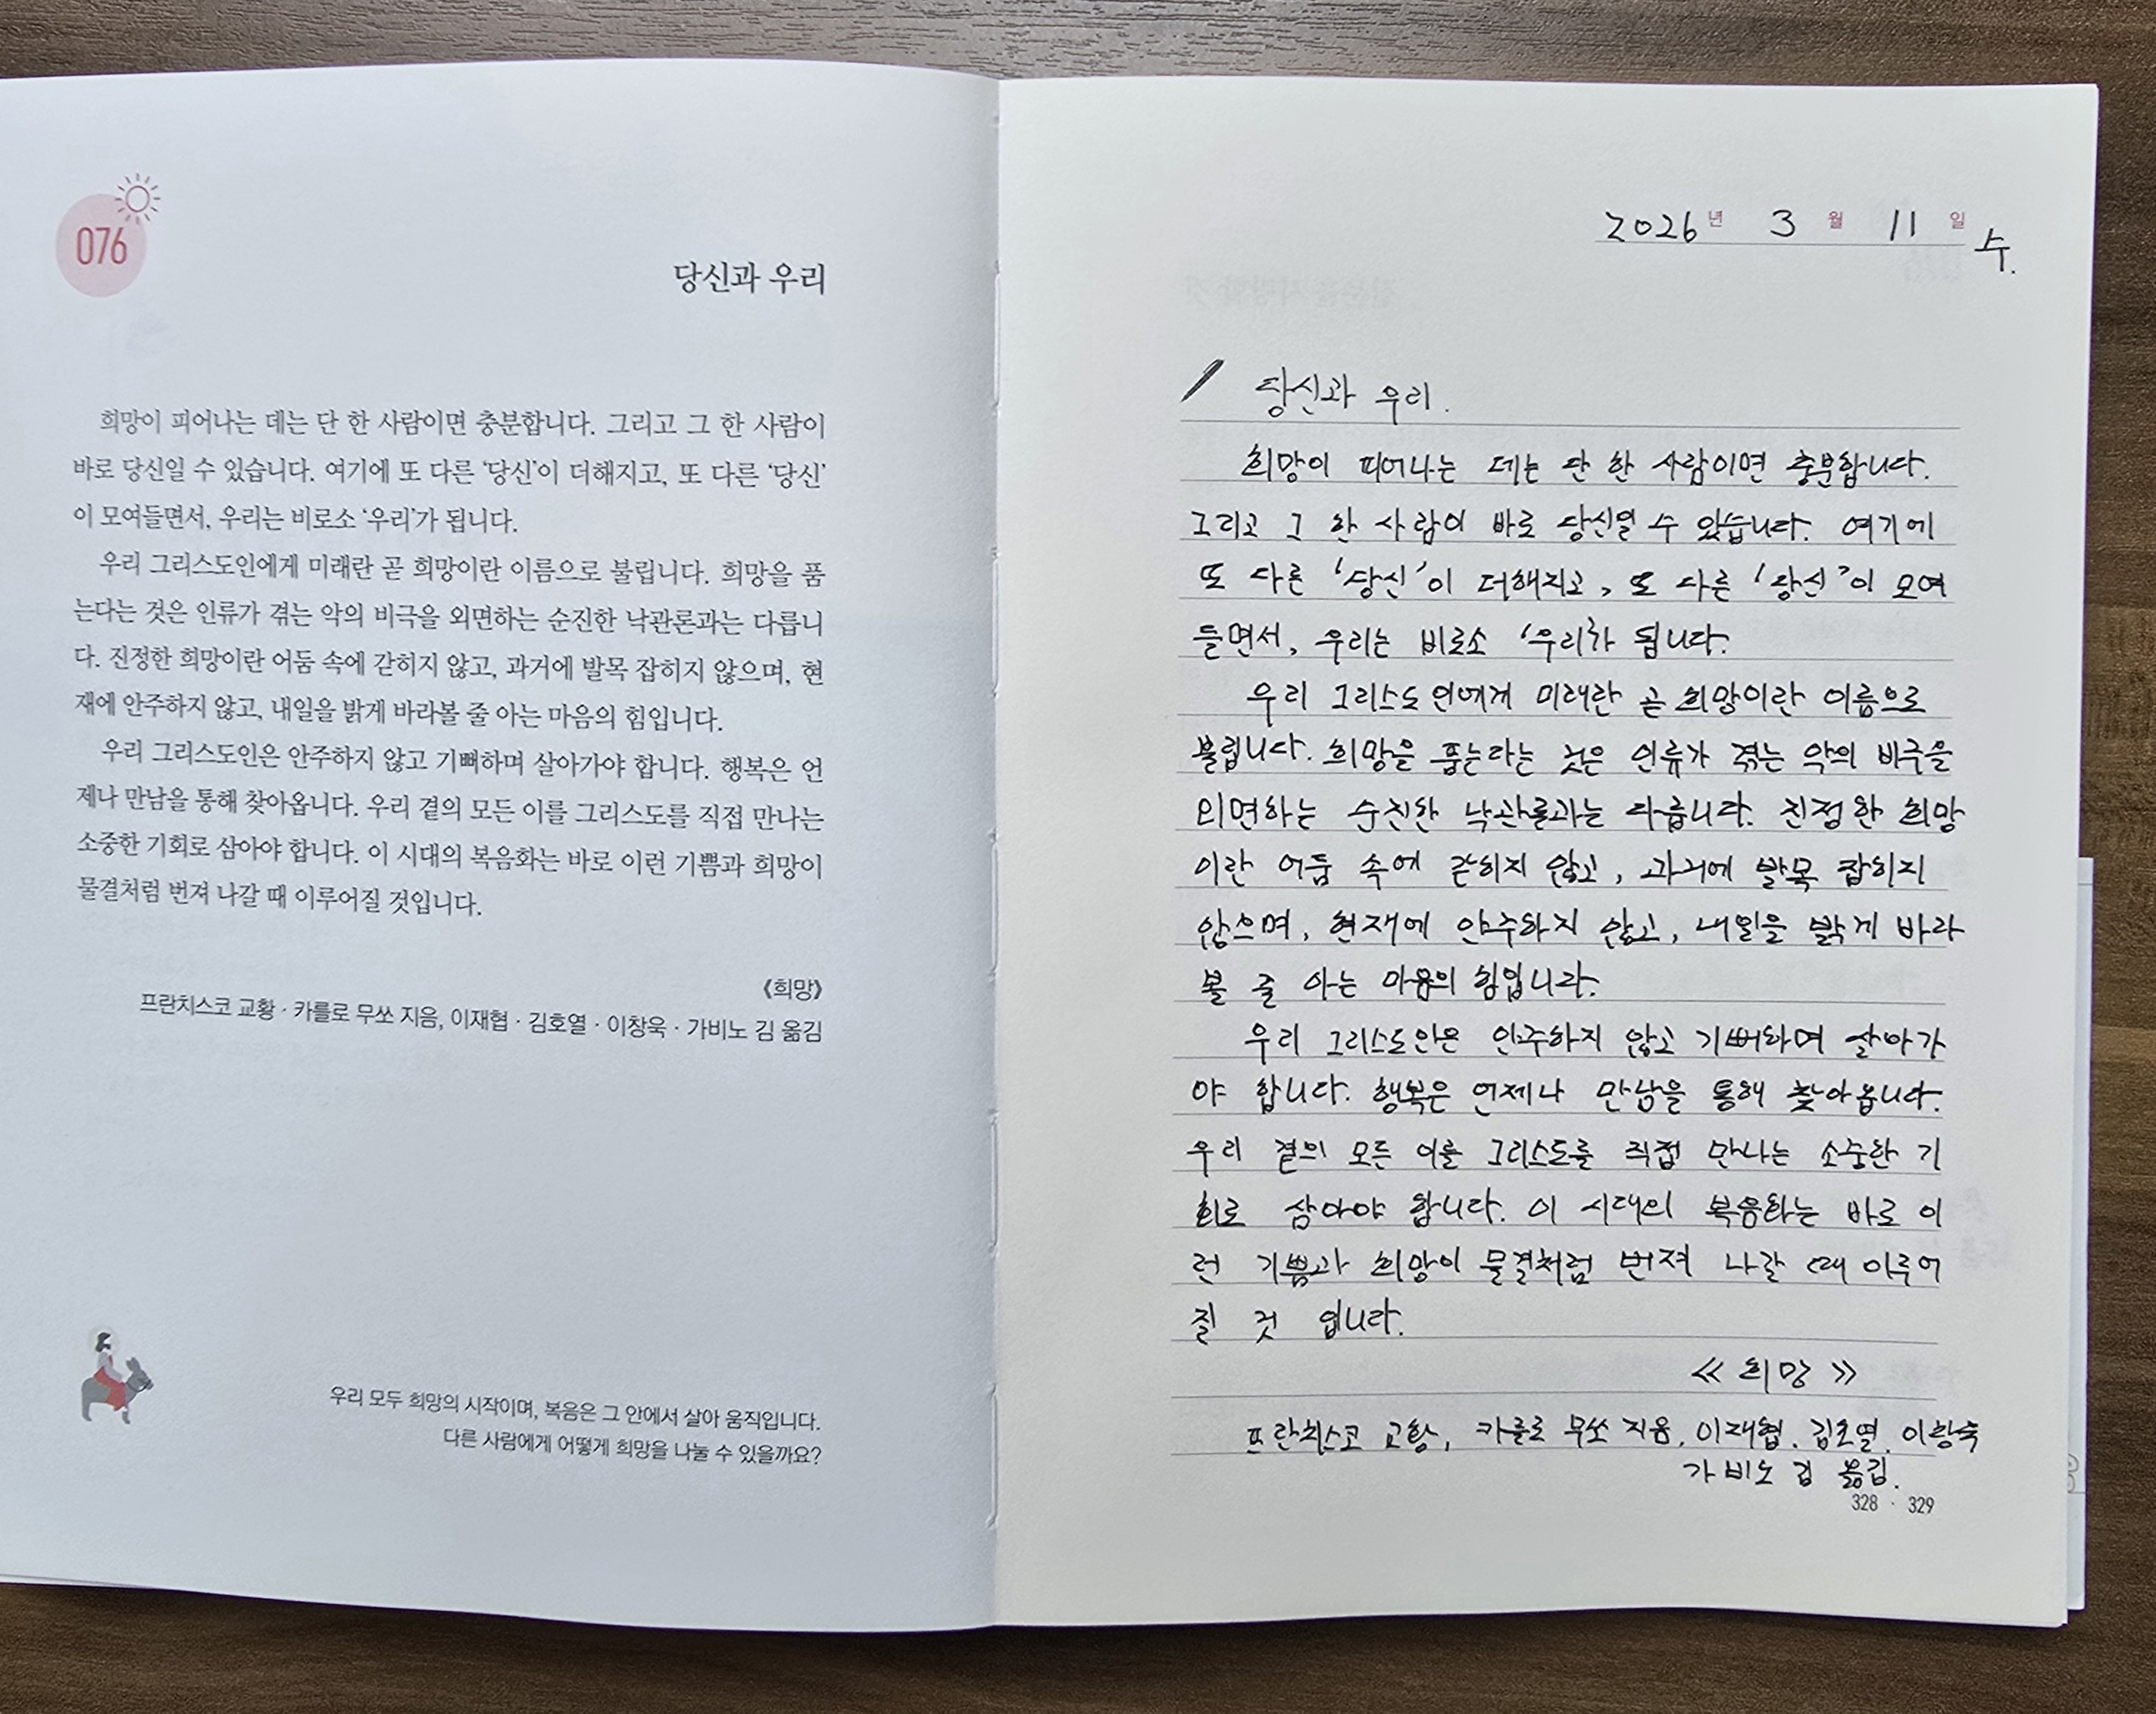 076
당신과 우리
희망이 피어나는 데는 단 한 사람이면 충분합니다. 그리고 그 한 사람이
바로 당신일 수 있습니다. 여기에 또 다른 ‘당신’이 더해지고, 또 다른 ‘당신’
이 모여들면서, 우리는 비로소 ‘우리’가 됩니다.
우리 그리스도인에게 미래란 곧 희망이란 이름으로 불립니다. 희망을 품
는다는 것은 인류가 겪는 악의 비극을 외면하는 순진한 낙관론과는 다릅니
다. 진정한 희망이란 어둠 속에 갇히지 않고, 과거에 발목 잡히지 않으며, 현
재에 안주하지 않고, 내일을 밝게 바라볼 줄 아는 마음의 힘입니다.
우리 그리스도인은 안주하지 않고 기뻐하며 살아가야 합니다. 행복은 언
제나 만남을 통해 찾아옵니다. 우리 곁의 모든 이를 그리스도를 직접 만나는
소중한 기회로 삼아야 합니다. 이 시대의 복음화는 바로 이런 기쁨과 희망이
물결처럼 번져 나갈 때 이루어질 것입니다.
《희망》
프란치스코 교황 · 카를로 무쏘 지음, 이재협 · 김호열 · 이창욱 · 가비노 김 옮김
우리 모두 희망의 시작이며, 복음은 그 안에서 살아 움직입니다.
다른 사람에게 어떻게 희망을 나눌 수 있을까요?
2026년 3월 11일 수.
당신과 우리.
희망이 피어나는 데는 단 한 사람이면 충분합니다.
그리고 그 한 사람이 바로 당신일 수 있습니다. 여기에
또 다른 ‘당신’이 더해지고, 또 다른 ‘당신’이 모여
들면서, 우리는 비로소 ‘우리’가 됩니다.
우리 그리스도인에게 미래란 곧 희망이란 이름으로
불립니다. 희망을 품는다는 것은 인류가 겪는 악의 비극을
외면하는 순진한 낙관론과는 다릅니다. 진정한 희망
이란 어둠 속에 갇히지 않고, 과거에 발목 잡히지
않으며, 현재에 안주하지 않고, 내일을 밝게 바라
볼 줄 아는 마음의 힘입니다.
우리 그리스도인은 안주하지 않고 기뻐하며 살아가
야 합니다. 행복은 언제나 만남을 통해 찾아옵니다.
우리 곁의 모든 이를 그리스도를 직접 만나는 소중한 기
회로 삼아야 합니다. 이 시대의 복음화는 바로 이
런 기쁨과 희망이 물결처럼 번져 나갈 때 이루어
질 것 입니다.
《 희망 》
프란치스코 교황, 카를로 무쏘 지음, 이재협. 김호열. 이창욱
가비노 김 옮김.
328 · 329